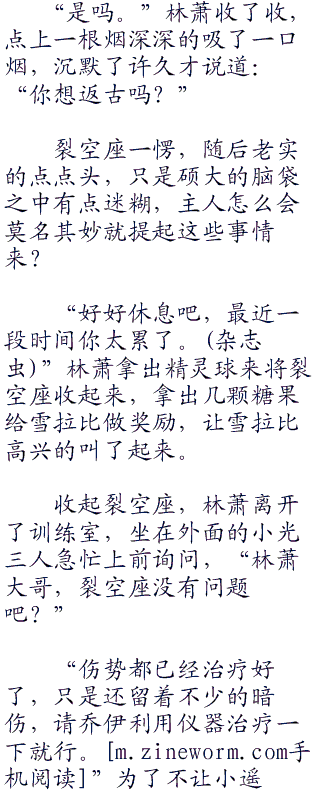 “是吗。”林萧收了收，
点上一根烟深深的吸了一口
烟，沉默了许久才说道：
“你想返古吗？”
裂空座一愣，随后老实
的点点头，只是硕大的脑袋
之中有点迷糊，主人怎么会
莫名其妙就提起这些事情
来？
“好好休息吧，最近一
段时间你太累了。(杂志
虫)”林萧拿出精灵球来将裂
空座收起来，拿出几颗糖果
给雪拉比做奖励，让雪拉比
高兴的叫了起来。
收起裂空座，林萧离开
了训练室，坐在外面的小光
三人急忙上前询问，“林萧
大哥，裂空座没有问题
吧？”
“伤势都已经治疗好
了，只是还留着不少的暗
伤，请乔伊利用仪器治疗一
下就行。[m.zineworm.com手
机阅读]”为了不让小遥